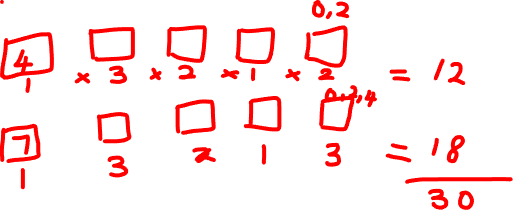 0,2
4
1 × 3 × 2 × 1 × 2 = 12
0,2,4
7
1 3 2 1 3 = 18
30